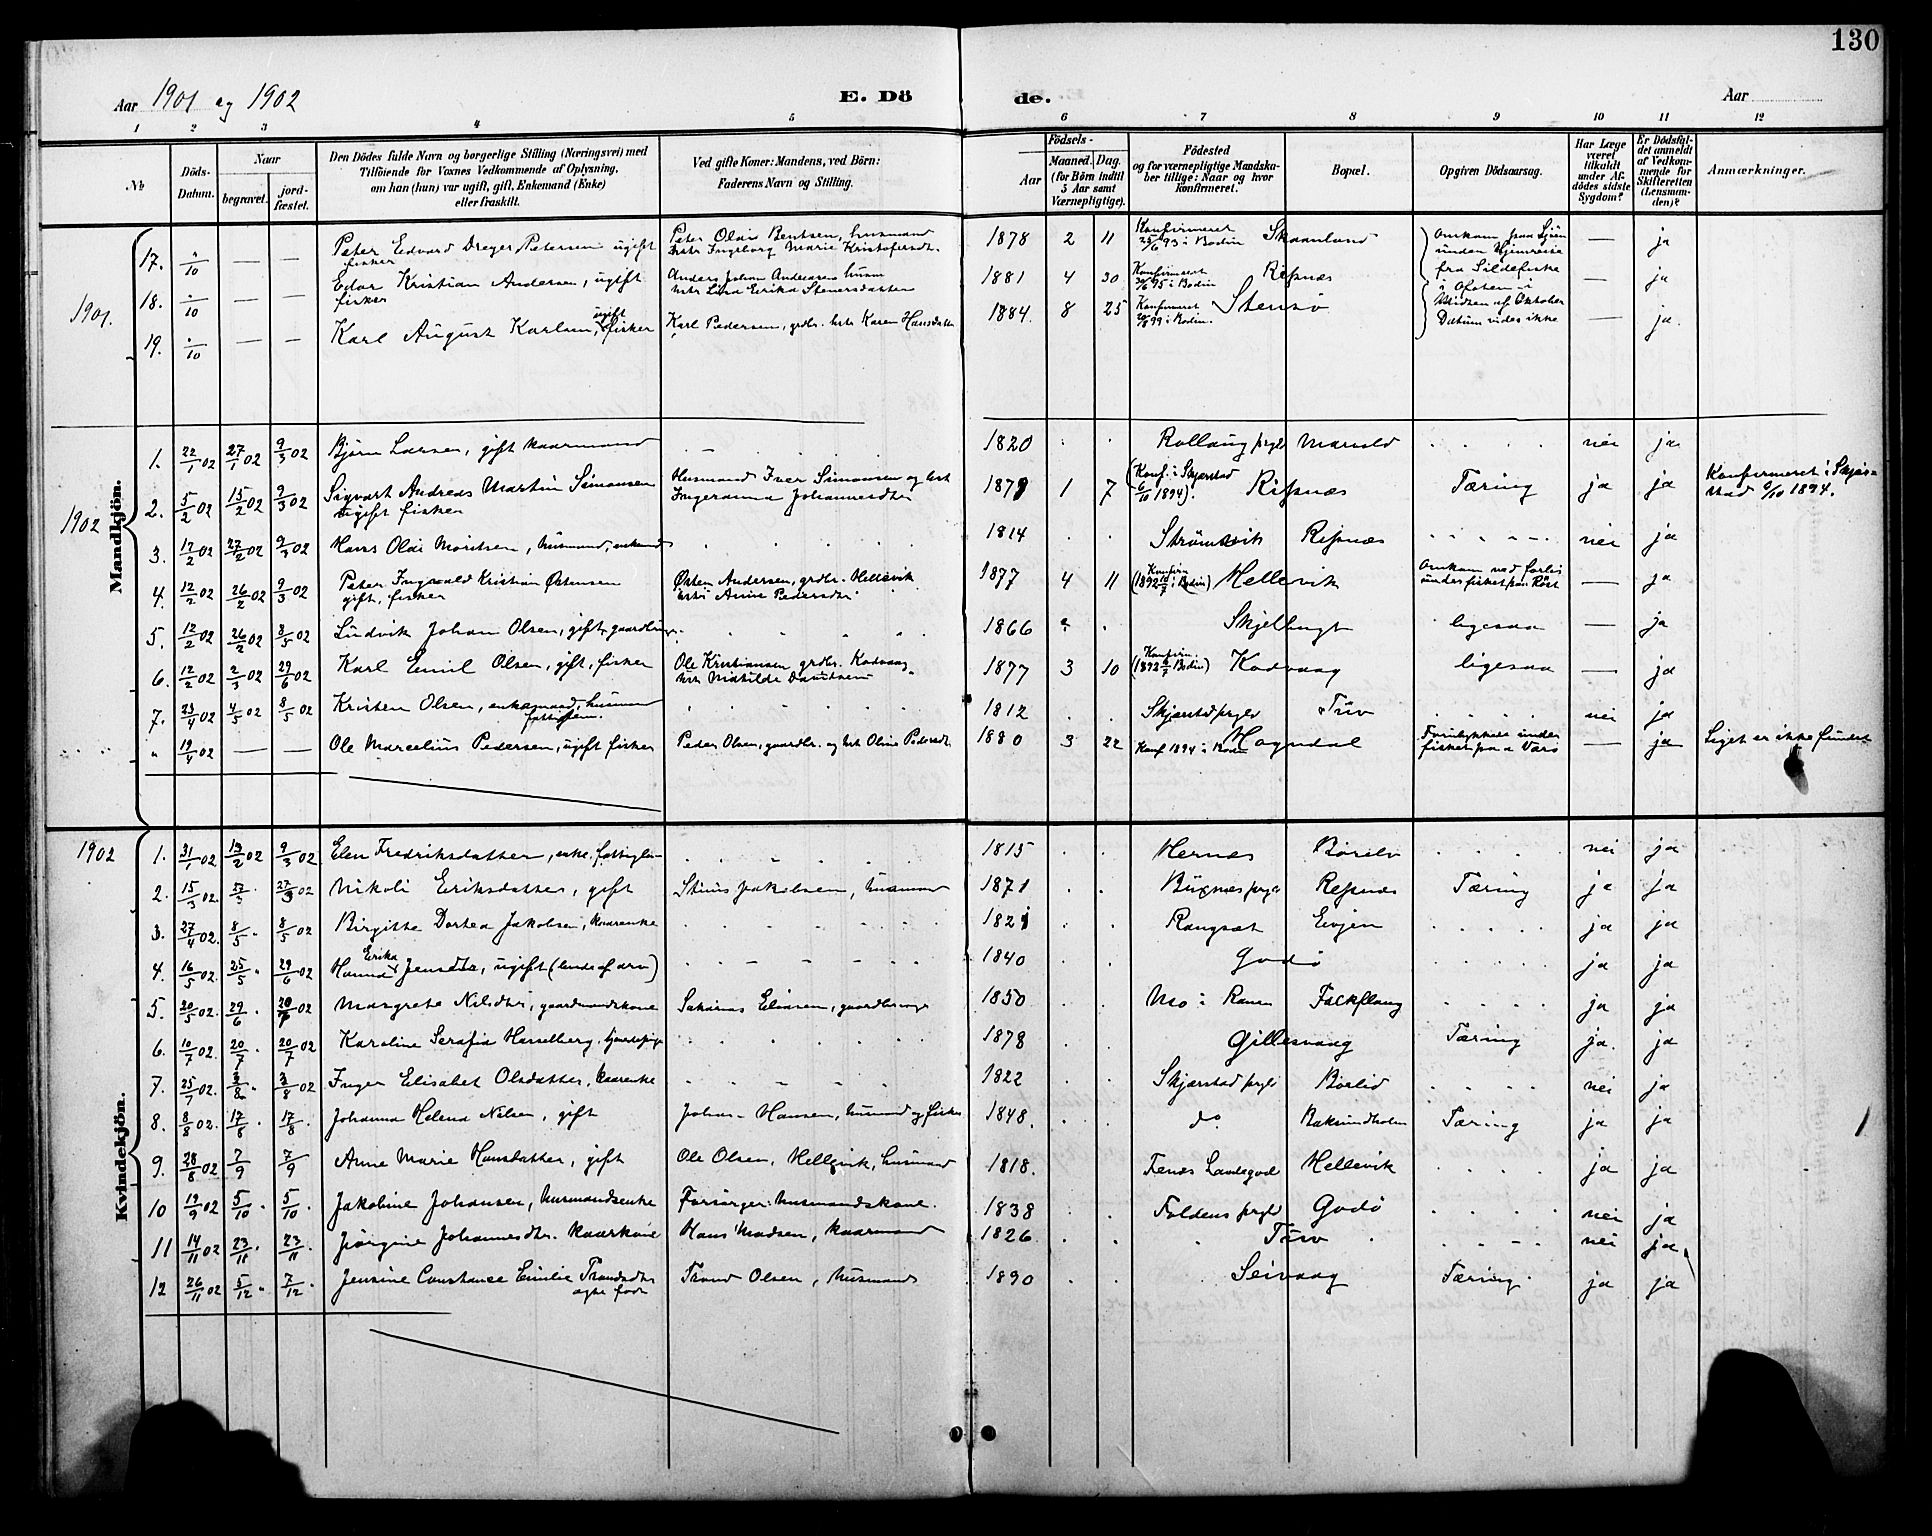 130
Aar 1901 og 1902 E. Dö de. Aar
1 2 3 4 5 6 7 8 9 10 11 12
No Döds-Datum. Naar begravet. jord-fæstet. Den Dödes fulde Navn og borgerlige Stilling (Næringsvei) med Tilföiende for Voxnes Vedkommende af Oplysning, om han (hun) var ugift, gift, Enkemand (Enke) eller fraskilt. Ved gifte Koner: Mandens, ved Börn: Faderens Navn og Stilling. Födsels- Aar Maaned. Dag. (for Börn indtil 5 Aar samt Værnepligtige). Födested og for værnepligtige Mandskaber tillige: Naar og hvor konfirmeret. Bopæl. Opgiven Dödsaarsag. Har Læge været tilkaldt under Afdödes sidste Sygdom? Er Dödsfaldet anmeldt af Vedkommende for Skifteretten (Lensmanden)? Anmærkninger.
Mandkjön.
1901.
17. "/10 — — Peter Edvard Dreyer Petersen ugift fisker Peter Olai Bentsen, husmand Hstr Ingeborg Marie Kristofersdtr 1878 2 11 Konfirmeret 25/6 93 i Bodin Skaanland — ja
18. "/10 — — Edor Kristian Andersen, ugift fisker Anders Johan Andersen husm hstr Lisa Erika Stenersdatter 1881 4 30 Konfirmeret 30/6 95 i Bodin Ripnæs — ja
19. "/10 — — Karl August Karlsen, ugift fisker Karl Pedersen, grdbr. hstr Karen Hansdatter 1884. 8 25 Konfirmeret 20/8 99 i Bodin. Stensö — ja.
Omkom paa Sjöen under Hjemreise fra Sildefiske i Ofoten i Midten af Oktober Datum vides ikke
1902
1. 22/1 02 27/1 02 9/3 02 Björn Larsen, gift kaarmand 1820 Rollaug prgld nei ja
2. 5/2 02 15/2 02 9/3 02 Sigvart Andreas Martin Simonsen ugift fisker Husmand Iver Simonsen og hst Ingeranna Johannesdtr 1879 1 7 (Konf. i Skjerstad 6/10 1894). Ripnæs Tæring ja ja Konfirmeret i Skjerstad 6/10 1894.
3. 12/2 02 27/2 02 9/3 02 Hans Olai Moritsen, husmand, enkemd 1814 Strömsvik Ripnæs nei ja
4. 12/2 02 26/2 02 9/3 02 Peter Ingvald Kristian Østensen gift, fisker Østen Andersen, grdbr. Hellevik hstr Anne Pedersdtr 1877 4 11 Konfirm (1892 10/7 i Bodin) Hellevik Omkom ved forlis under fisket paa Röst — ja
5. 12/2 02 26/2 02 8/5 02 Ludvik Johan Olsen, gift, gaardbruger. 1866 Skjelbugt ligesaa — ja
6. 12/2 02 2/3 02 29/6 02 Karl Emil Olsen, gift, fisker Ole Kristiansen, grdbr. Kodvaag, hstr Matilde Davidsen 1877 3 10 Konfirm. (1892 /7 Bodin) Kodvaag ligesaa — ja
7. 23/4 02 4/5 02 8/5 02 Kristen Olsen, enkemand, husmand 1812 Skjærstad prgld Tuv nei ja
" 19/4 02 — — Ole Marcelius Pedersen, ugift fisker Peder Olsen, gaardbr. og hst Oline Pedersdtr 1880 3 22 Konf 1894 i Bodin Hogndal Forulykkede under fisket paa Værö — ja Liget er ikke fundet
Kvindekjön.
1902
1. 31/1 02 13/2 02 9/3 02 Elen Fredriksdatter, enke, fattiglem 1815 Hernæs Börelv nei ja
2. 15/3 02. 23/3 27/3 02 Nikoli Eriksdatter, gift Jakobsen, husmand 1871 Buxnæs prgld Ripnæs Tæring ja ja
3. 27/4 02. 8/5 8/5 02 Birgitte Dortea Jakobsen, kaarenke 1821 Rangsæt Evjen ja ja
4. 16/5 02. 25/5 " 29/6 02 Hanna Erika Jensdtr, ugift (lende af arv) 1840 Godö ja ja
5. 20/5 02. 29/6 20/7 02 Margrete Nilsdtr, gaardmandskone Sakarias Eliasen, gaardbruger 1850 Mo i Ranen ja ja
6. 10/7 02. 20/7 20/7 02 Karoline Serafia Hasselberg, tjenestepige 1878 Gillesvaag Tæring ja. ja
7. 25/7 02. 3/8 " 3/8 02 Inger Elisabet Olsdatter, kaarenke 1822 Skjærstad prgld Börlid nei ja
8. 8/8 02. 17/8 17/8. Johanna Helena Nilsen, gift Johan Hansen, husmand og fisker 1848. do Baksundholm Tæring ja ja
9. 28/8 02 7/9 7/9 Anne Marie Hansdatter, gift Ole Olsen, Hellevik, husmand 1818. Fenæs Landegod Hellevik ja ja
10 19/9 02 5/10 5/10. Jakobine Johansen, husmandsenke Forsörger: husmandskone. 1838 Foldens prgld Godö nei ja
11 14/11 02 23/11 23/11. Jörgine Johannesdtr. kaarkone Hans Madsen, kaarmand 1826 Tuv nei ja
12 26/11 02 5/12 " 7/12. Jensine Constance Emilie Trondsdtr ægte född Trond Olsen, husmand 1890 Seivaag Tæring. ja ja